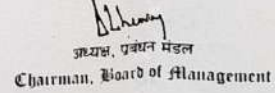 अध्यक्ष, प्रबंधन मंडल
Chairman, Board of Management